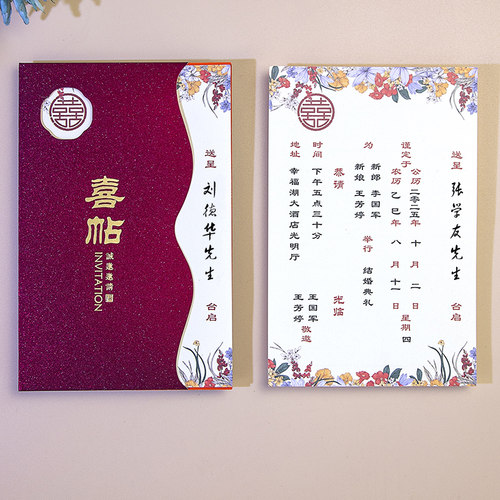 囍
喜帖
INVITATION
誠邀邀請
送呈 刘德华先生 台启
囍
送呈 张学友先生 台启
谨定于
公历二零二五年 十 月 二 日 星期 四
农历 乙 巳年 八 月 十一 日
为
新郎 李国军
新娘 王芳婷
举行 结婚典礼
恭请
光临
王国军
王芳婷
敬邀
时间 下午五点三十分
地址 幸福湖大酒店光明厅